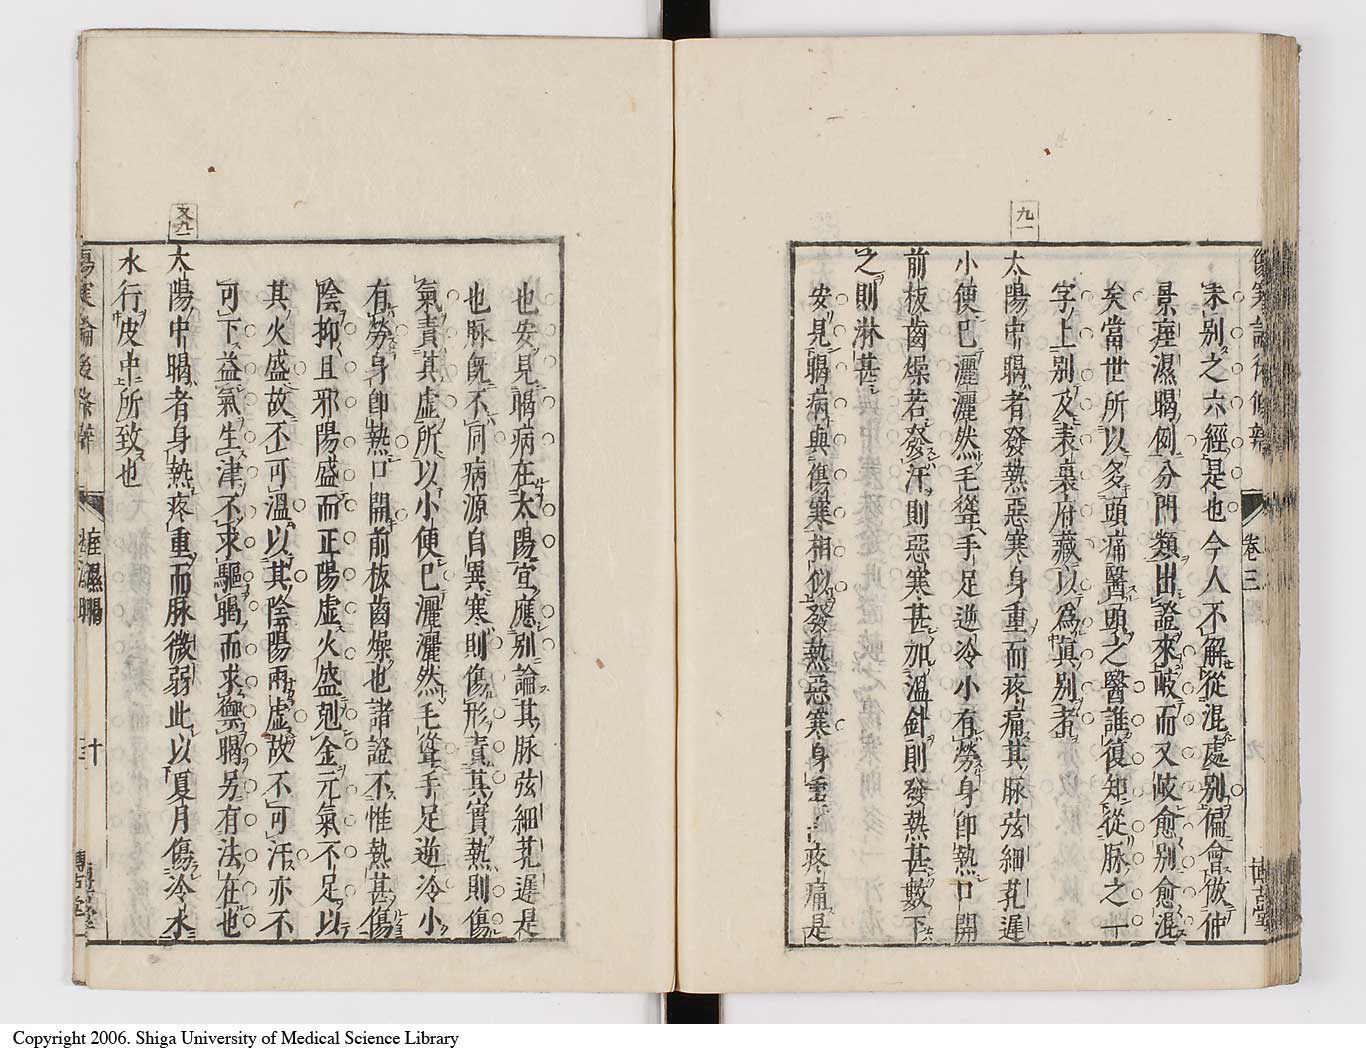 九一
傷寒論後條辯 卷三 博古堂
未別之六經是也今人不解從混處別偏會倣仲
景痙濕暍例分門類出證來岐而又岐愈別愈混
矣當世所以多頭痛醫頭之醫誰復知從脉之一
字上別及表裏府藏以爲眞別者
太陽中暍者發熱惡寒身重而疼痛其脉弦細芤遲
小便已灑灑然毛聳手足逆冷小有勞身即熱口開
前板齒燥若發汗則惡寒甚加溫針則發熱甚數下
之則淋甚
安見暍病與傷寒相似發熱惡寒身重疼痛是
也安見暍病在太陽宜應別論其脉弦細芤遲是
也脉旣不同病源自異寒則傷形責其實熱則傷
氣責其虛所以小便已灑灑然毛聳手足逆冷小
有勞身即熱口開前板齒燥也諸證不惟熱甚傷
陰抑且邪陽盛而正陽虛火盛剋金元氣不足以
其火盛故不可溫以其陰陽兩虛故不可汗亦不
可下益氣生津不求驅暍而求禦暍另有法在也
又九一
太陽中暍者身熱疼重而脉微弱此以夏月傷冷水
水行皮中所致也
傷寒論後條辯 痙濕暍 十
Copyright 2006. Shiga University of Medical Science Library